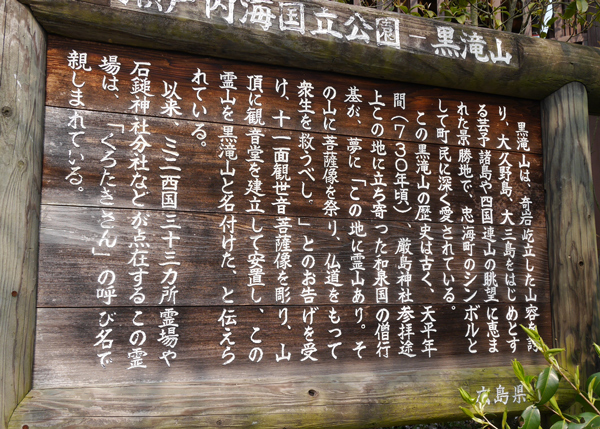 瀬戸内海国立公園 - 黒滝山
黒滝山は、奇岩屹立した山容を誇
り、大久野島、大三島をはじめとす
る芸予諸島や四国連山の眺望に恵ま
れた景勝地で、忠海町のシンボルと
して町民に深く愛されている。
この黒滝山の歴史は古く、天平年
間（730年頃）、厳島神社参拝途
上この地に立ち寄った和泉国の僧行
基が、夢に「この地に霊山あり。そ
の山に菩薩像を祭り、仏道をもって
衆生を救うべし。」とのお告げを受
け、十一面観世音菩薩像を彫り、山
頂に観音堂を建立して安置し、この
霊山を黒滝山と名付けた、と伝えら
れている。
以来、ミニ西国三十三カ所霊場や
石鎚神社分社などが点在するこの霊
場は、「くろたきさん」の呼び名で
親しまれている。
広島県